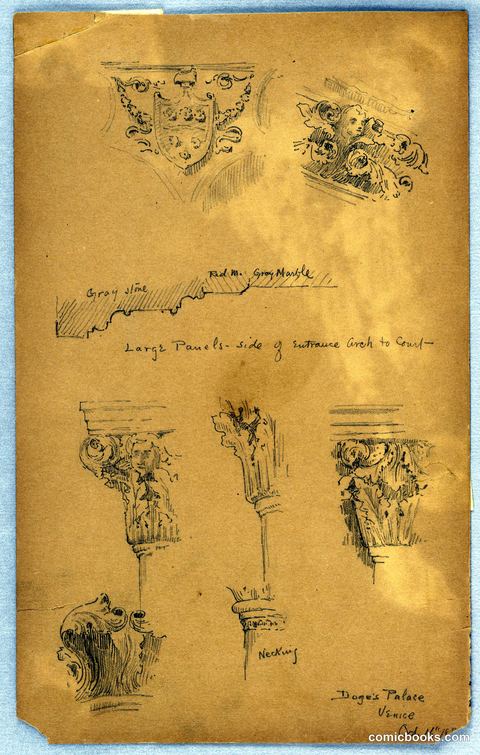 Gray stone
Red M. Gray Marble
Large Panels - side of Entrance Arch to Court
Necking
Doge's Palace
Venice
Oct.
comicbooks.com